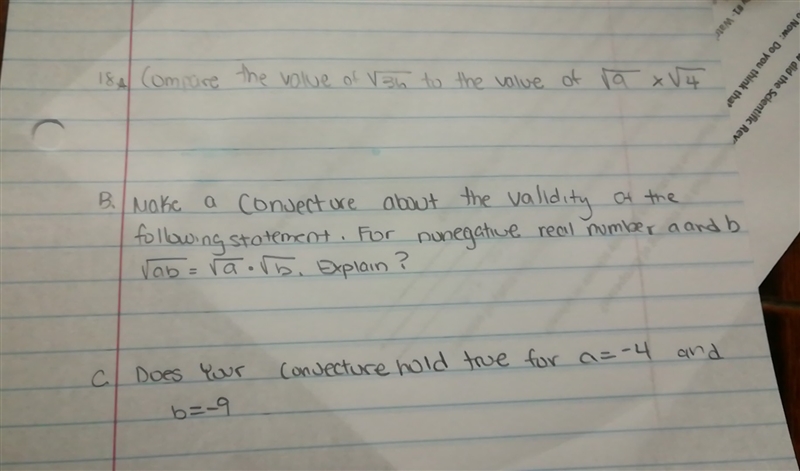 18A Compare the value of √36 to the value of √9 × √4
B. Make a Convecture about the validity of the
following statement. For nunegative real number a and b
√ab = √a • √b. Explain?
C. Does Your Convecture hold true for a = -4 and
b = -9
Now: Do you think that
did the Scientific Rev